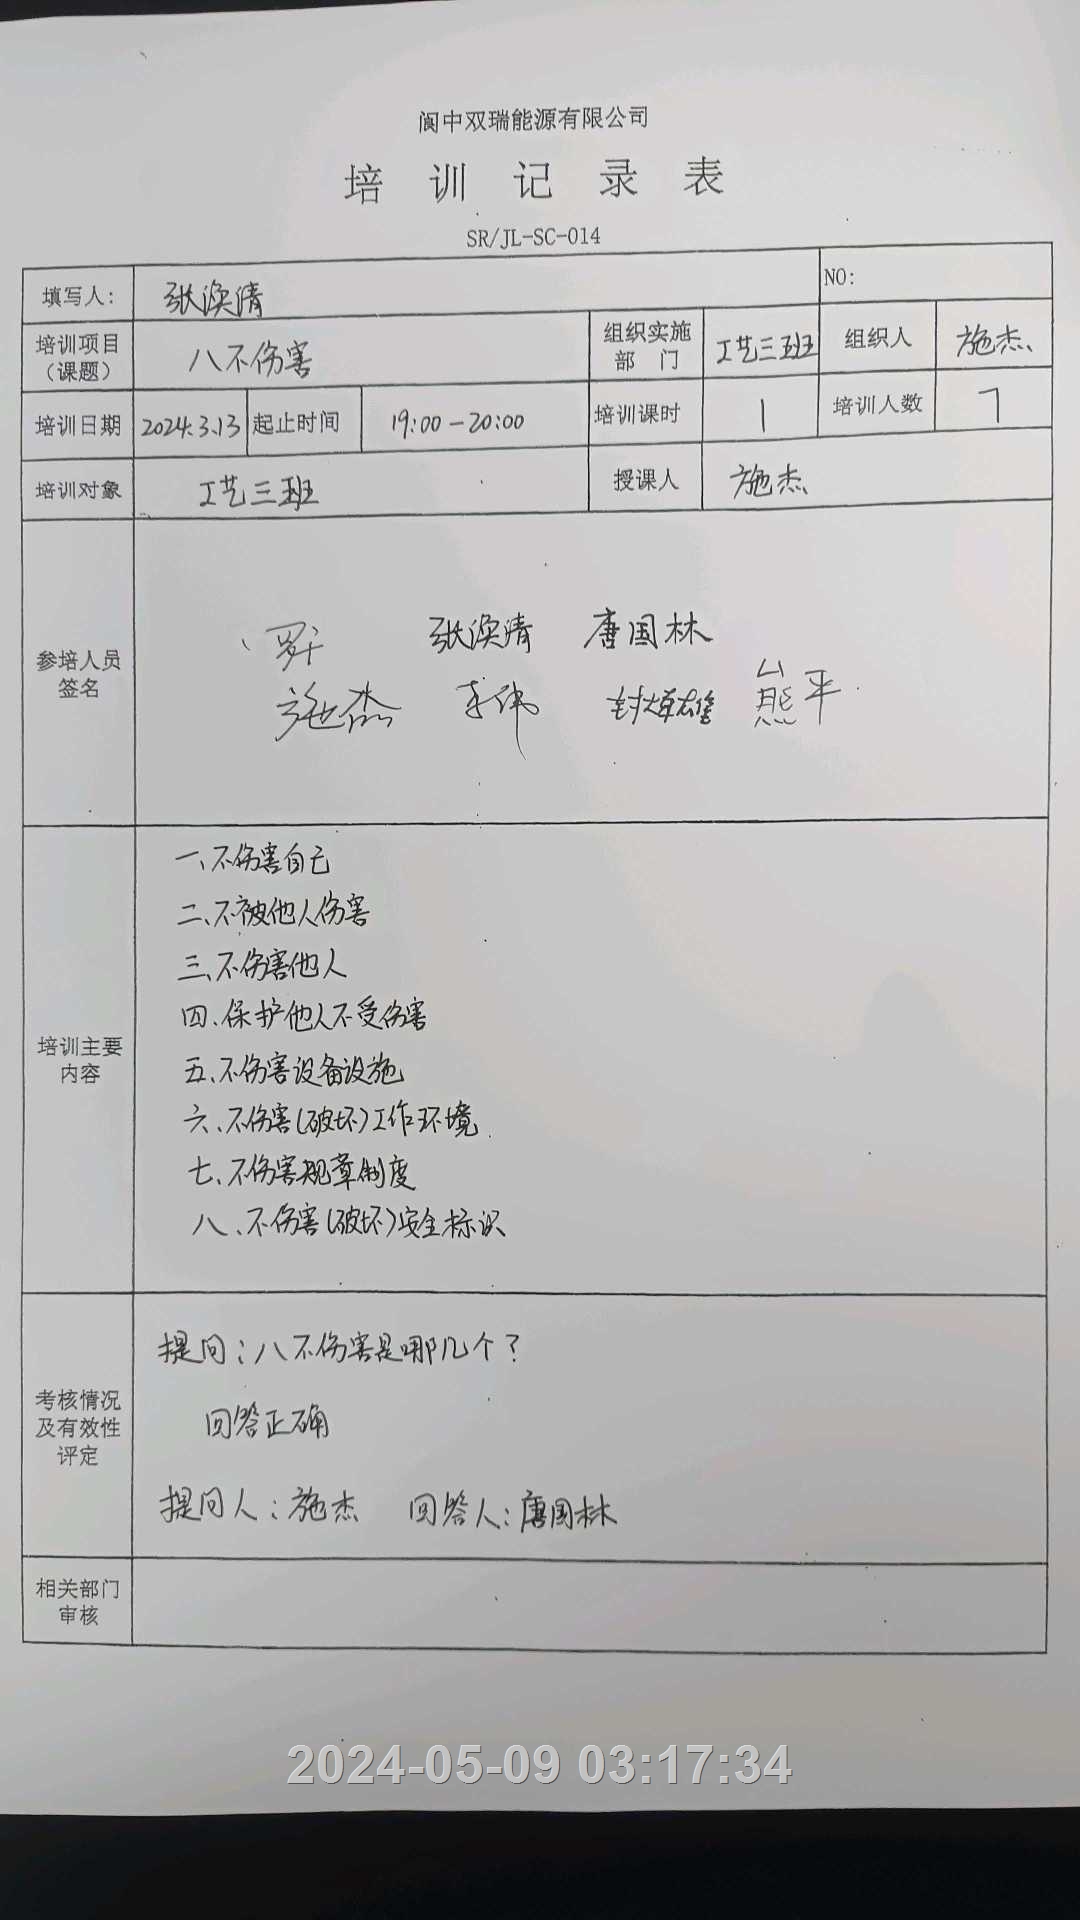 阆中双瑞能源有限公司
培训记录表
SR/JL-SC-014
填写人： 张涣清 NO:
培训项目（课题） 八不伤害 组织实施部门 工艺三班 组织人 施杰
培训日期 2024.3.13 起止时间 19:00-20:00 培训课时 1 培训人数 7
培训对象 工艺三班 授课人 施杰
参培人员签名
张涣清 唐国林
施杰 李伟 熊平
培训主要内容
一、不伤害自己
二、不被他人伤害
三、不伤害他人
四、保护他人不受伤害
五、不伤害设备设施
六、不伤害(破坏)工作环境
七、不伤害规章制度
八、不伤害(破坏)安全标识
考核情况及有效性评定
提问：八不伤害是哪几个？
回答正确
提问人：施杰 回答人：唐国林
相关部门审核
2024-05-09 03:17:34